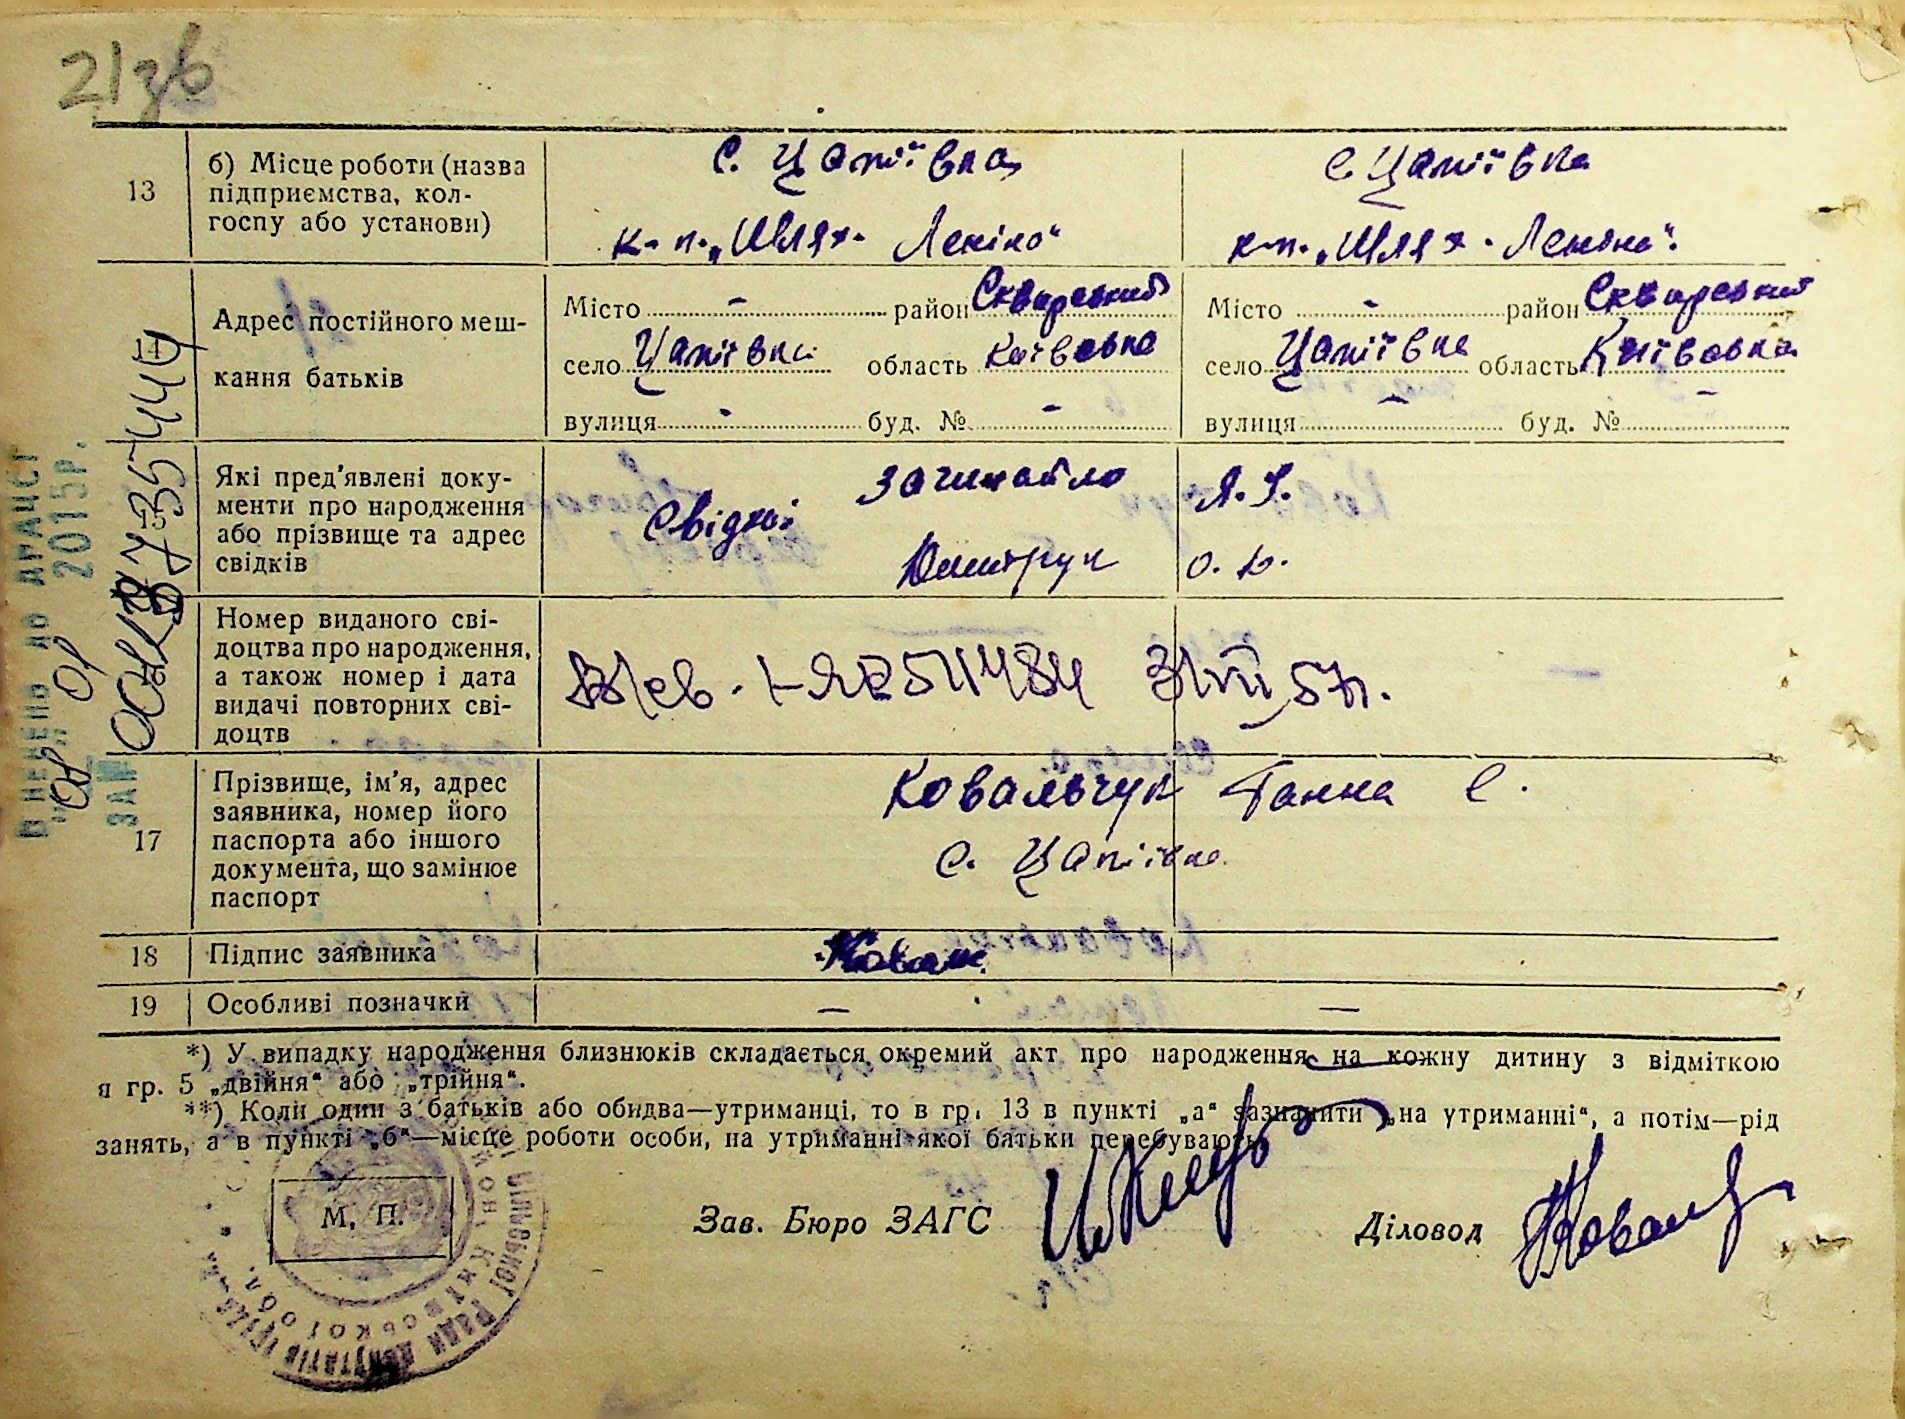 21зв
13
б) Місце роботи (назва
підприємства, кол-
госпу або установи)
с. Цапіївка
к-п. „Шлях Леніна“
с. Цапіївка
к-п. „Шлях Леніна“.
14
Адрес постійного меш-
кання батьків
Місто - район Сквирський
село Цапіївка область Київська
вулиця - буд. № -
Місто - район Сквирський
село Цапіївка область Київська
вулиця - буд. № -
15
Які пред’явлені доку-
менти про народження
або прізвище та адрес
свідків
Свідки
Зачинайло
Дмитрук
О. Ю.
Номер виданого сві-
доцтва про народження,
а також номер і дата
видачі повторних сві-
доцтв
511484 31/VII 57р.
17
Прізвище, ім’я, адрес
заявника, номер його
паспорта або іншого
документа, що замінює
паспорт
Ковальчук Ганна С.
с. Цапіївка
18
Підпис заявника
19
Особливі позначки
— —
*) У випадку народження близнюків складається окремий акт про народження на кожну дитину з відміткою
я гр. 5 „двійня“ або „трійня“.
**) Коли один з батьків або обидва—утриманці, то в гр. 13 в пункті „а“ зазначити „на утриманні“, а потім—рід
занять, а в пункті „б“—місце роботи особи, на утриманні якої батьки перебувають.
М. П.
Зав. Бюро ЗАГС
Діловод
Внесено до ДРАЦСГ
2015р.
ЗА №